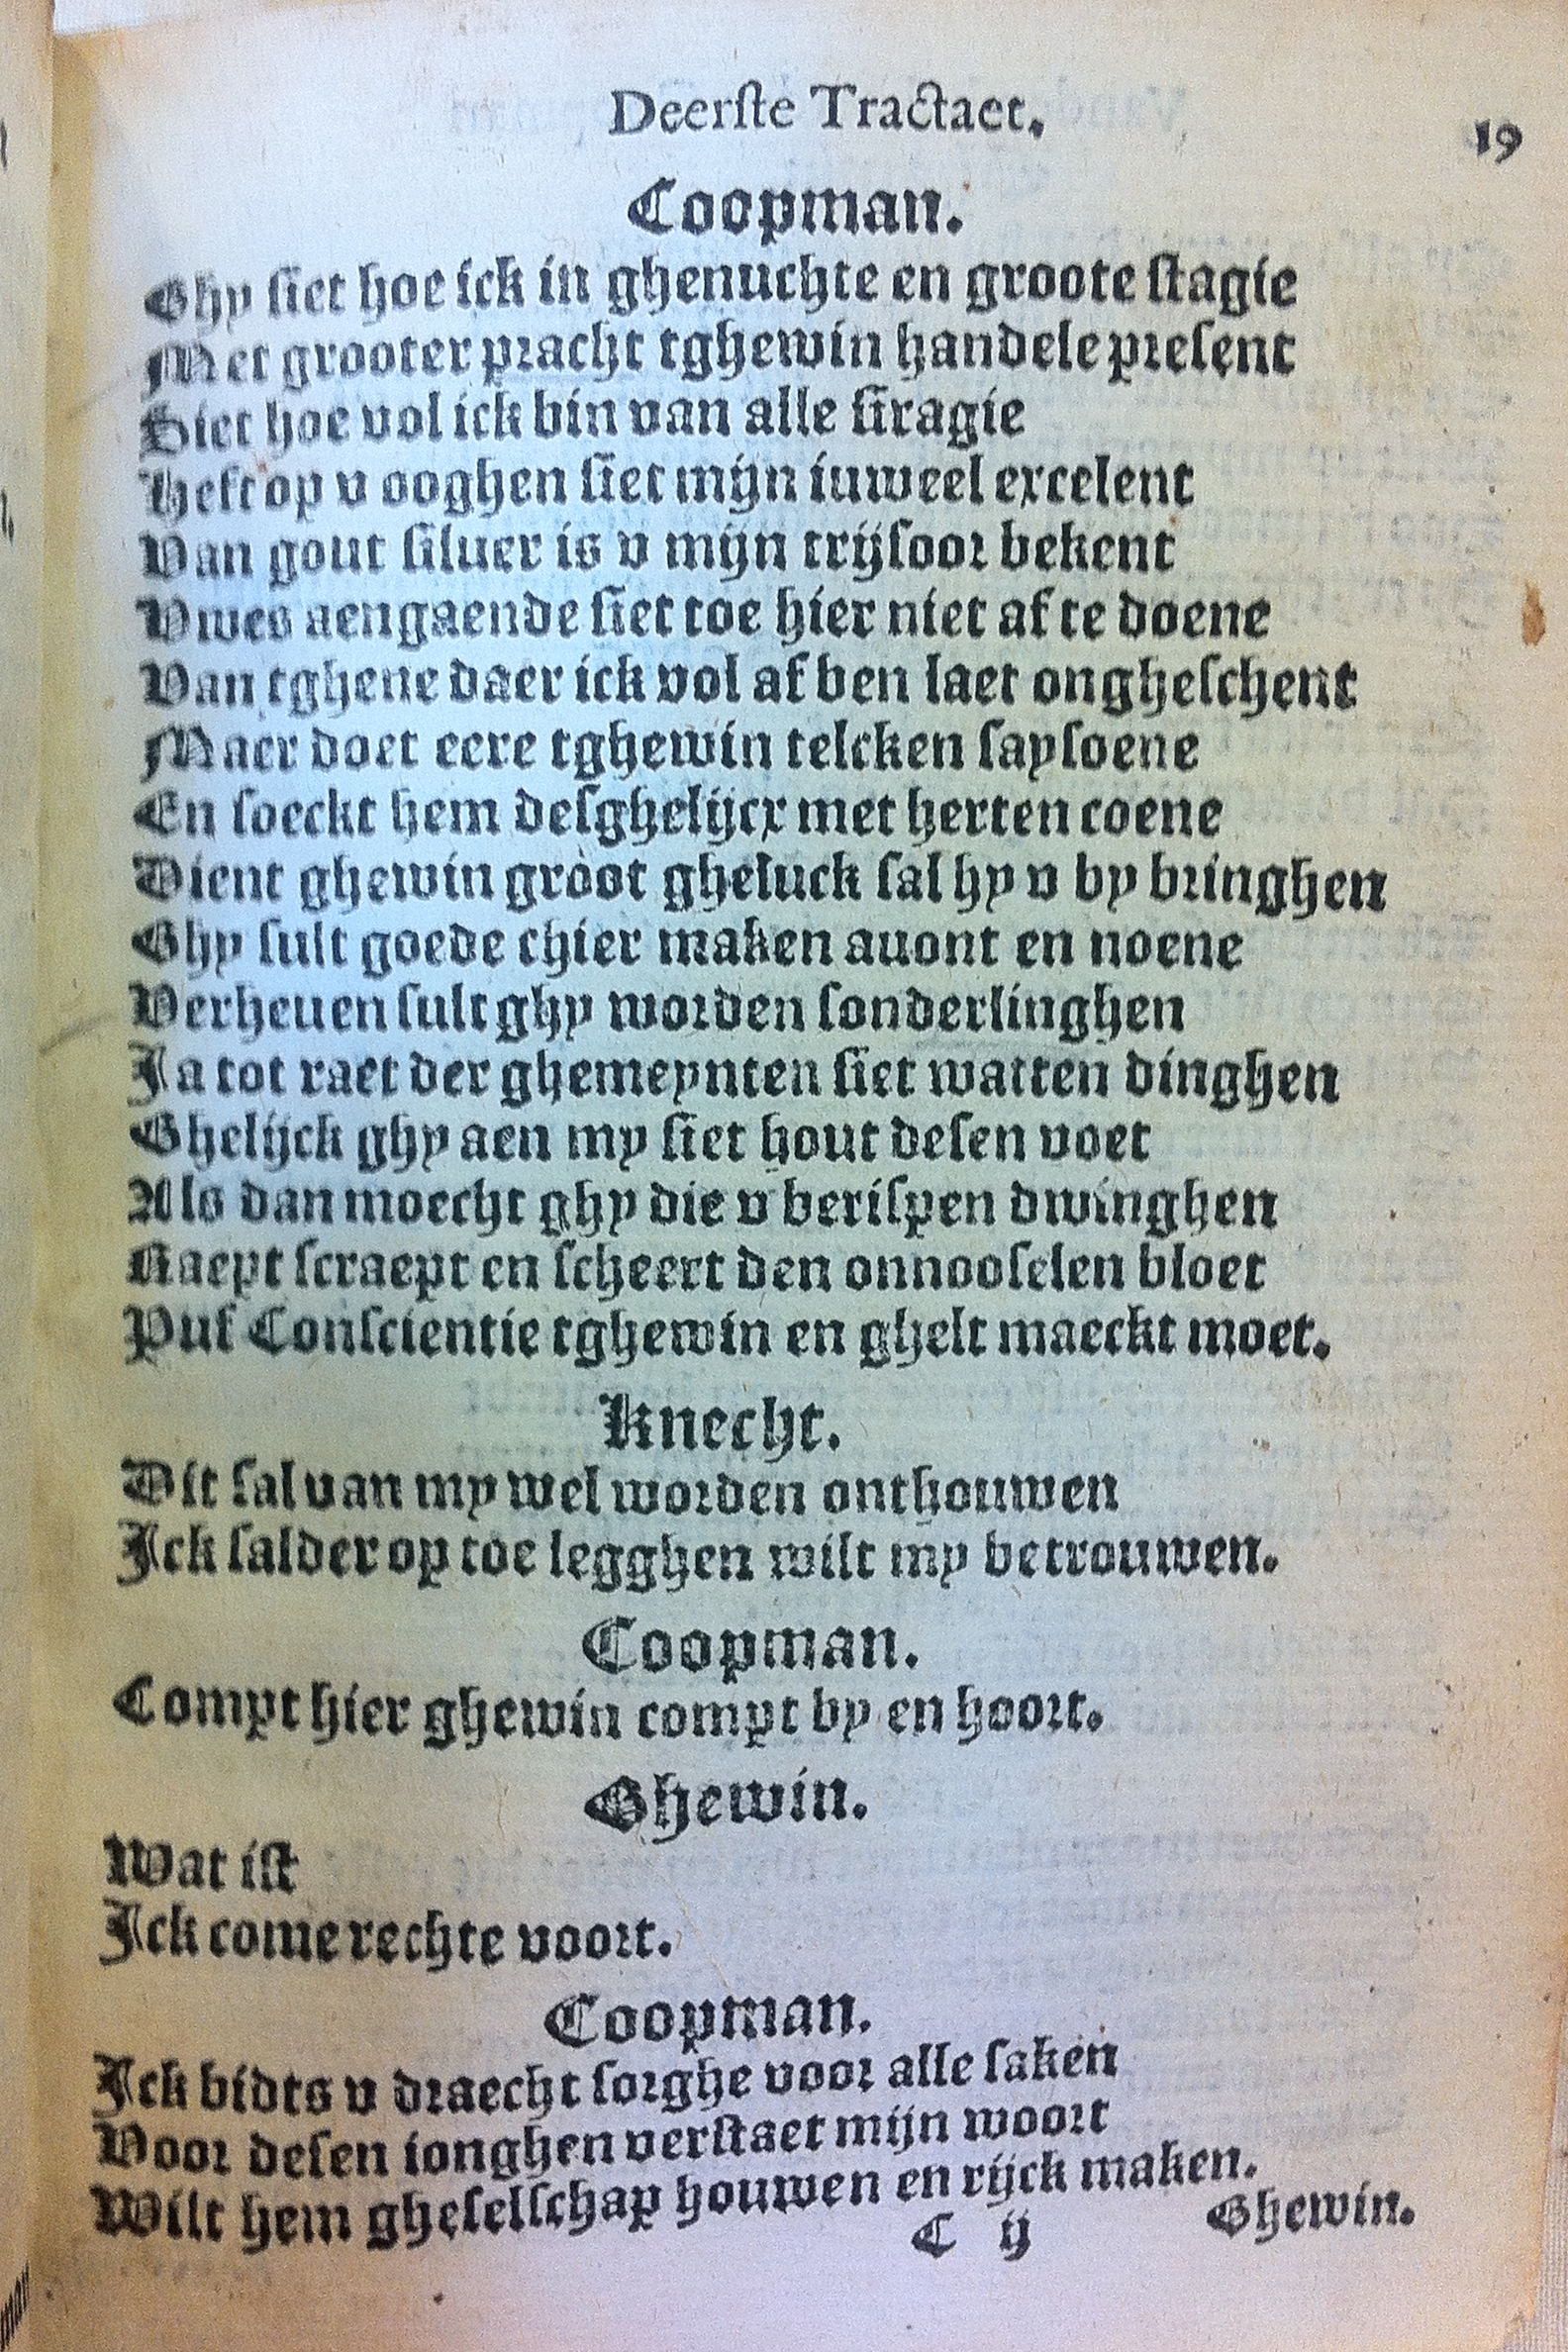 Deerste Tractaet.
19
Coopman.
Ghy siet hoe ick in ghenuchte en groote stagie
Met grooter pracht tghewin handele present
Siet hoe vol ick bin van alle stragie
Heft op v ooghen siet mijn iuweel excelent
Van gout siluer is v mijn trijsoor bekent
Vwes aengaende siet toe hier niet af te doene
Van tghene daer ick vol af ben laet ongheschent
Maer doet eere tghewin telcken saysoene
En soeckt hem desghelijcx met herten coene
Dient ghewin groot gheluck sal hy v by bringhen
Ghy sult goede chier maken auont en noene
Verheuen sult ghy worden sonderlinghen
Ja tot raet der ghemeynten siet watten dinghen
Ghelijck ghy aen my siet hout desen voet
Als dan moecht ghy die v berispen dwinghen
Raept scraept en scheert den onnooselen bloet
Puf Conscientie tghewin en ghelt maeckt moet.
Knecht.
Dit sal van my wel worden onthouwen
Ick salder op toe legghen wilt my betrouwen.
Coopman.
Compt hier ghewin compt by en hoort.
Ghewin.
Wat ist
Ick come rechte voort.
Coopman.
Ick bidts v draecht sorghe voor alle saken
Voor desen ionghen verstaet mijn woort
Wilt hem gheselschap houwen en rijck maken.
C ij
Ghewin.